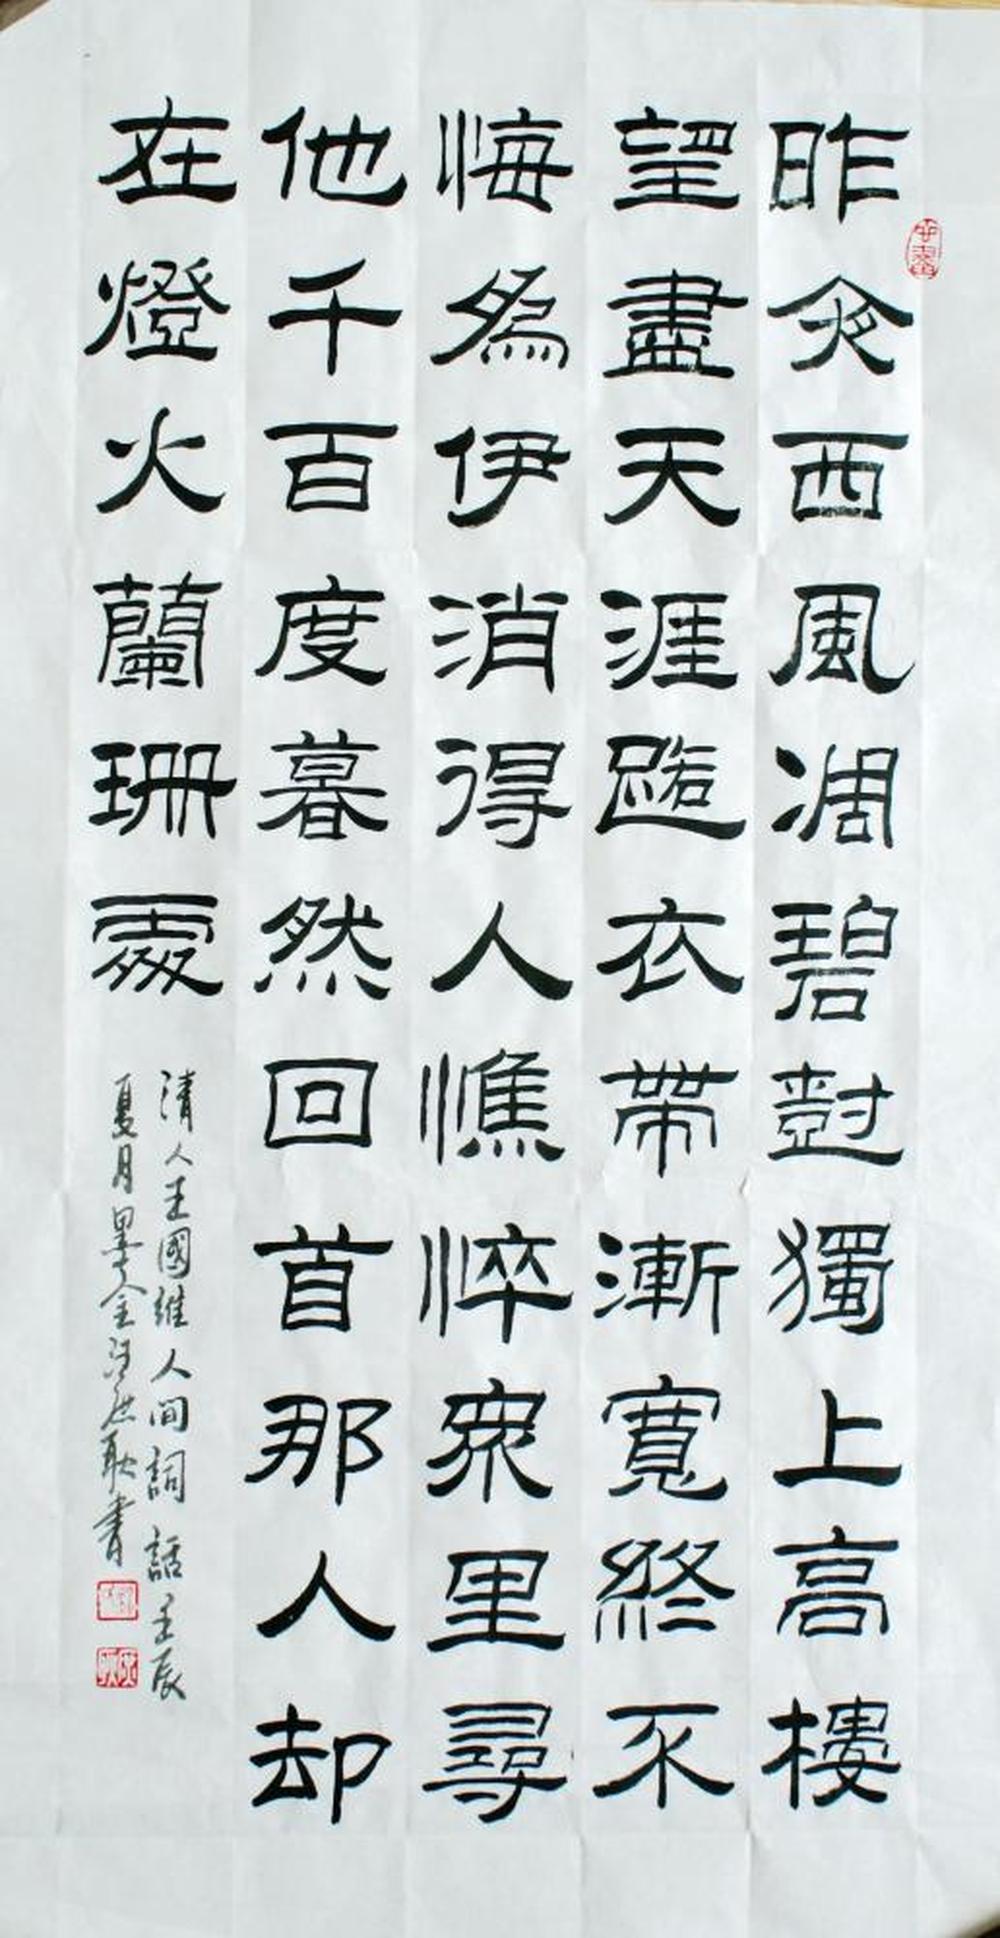 昨夜西風凋碧樹獨上高樓
望盡天涯路衣帶漸寬終不
悔爲伊消得人憔悴衆里尋
他千百度暮然回首那人却
在燈火蘭珊處
清人王國維人間詞話壬辰
夏月耿書